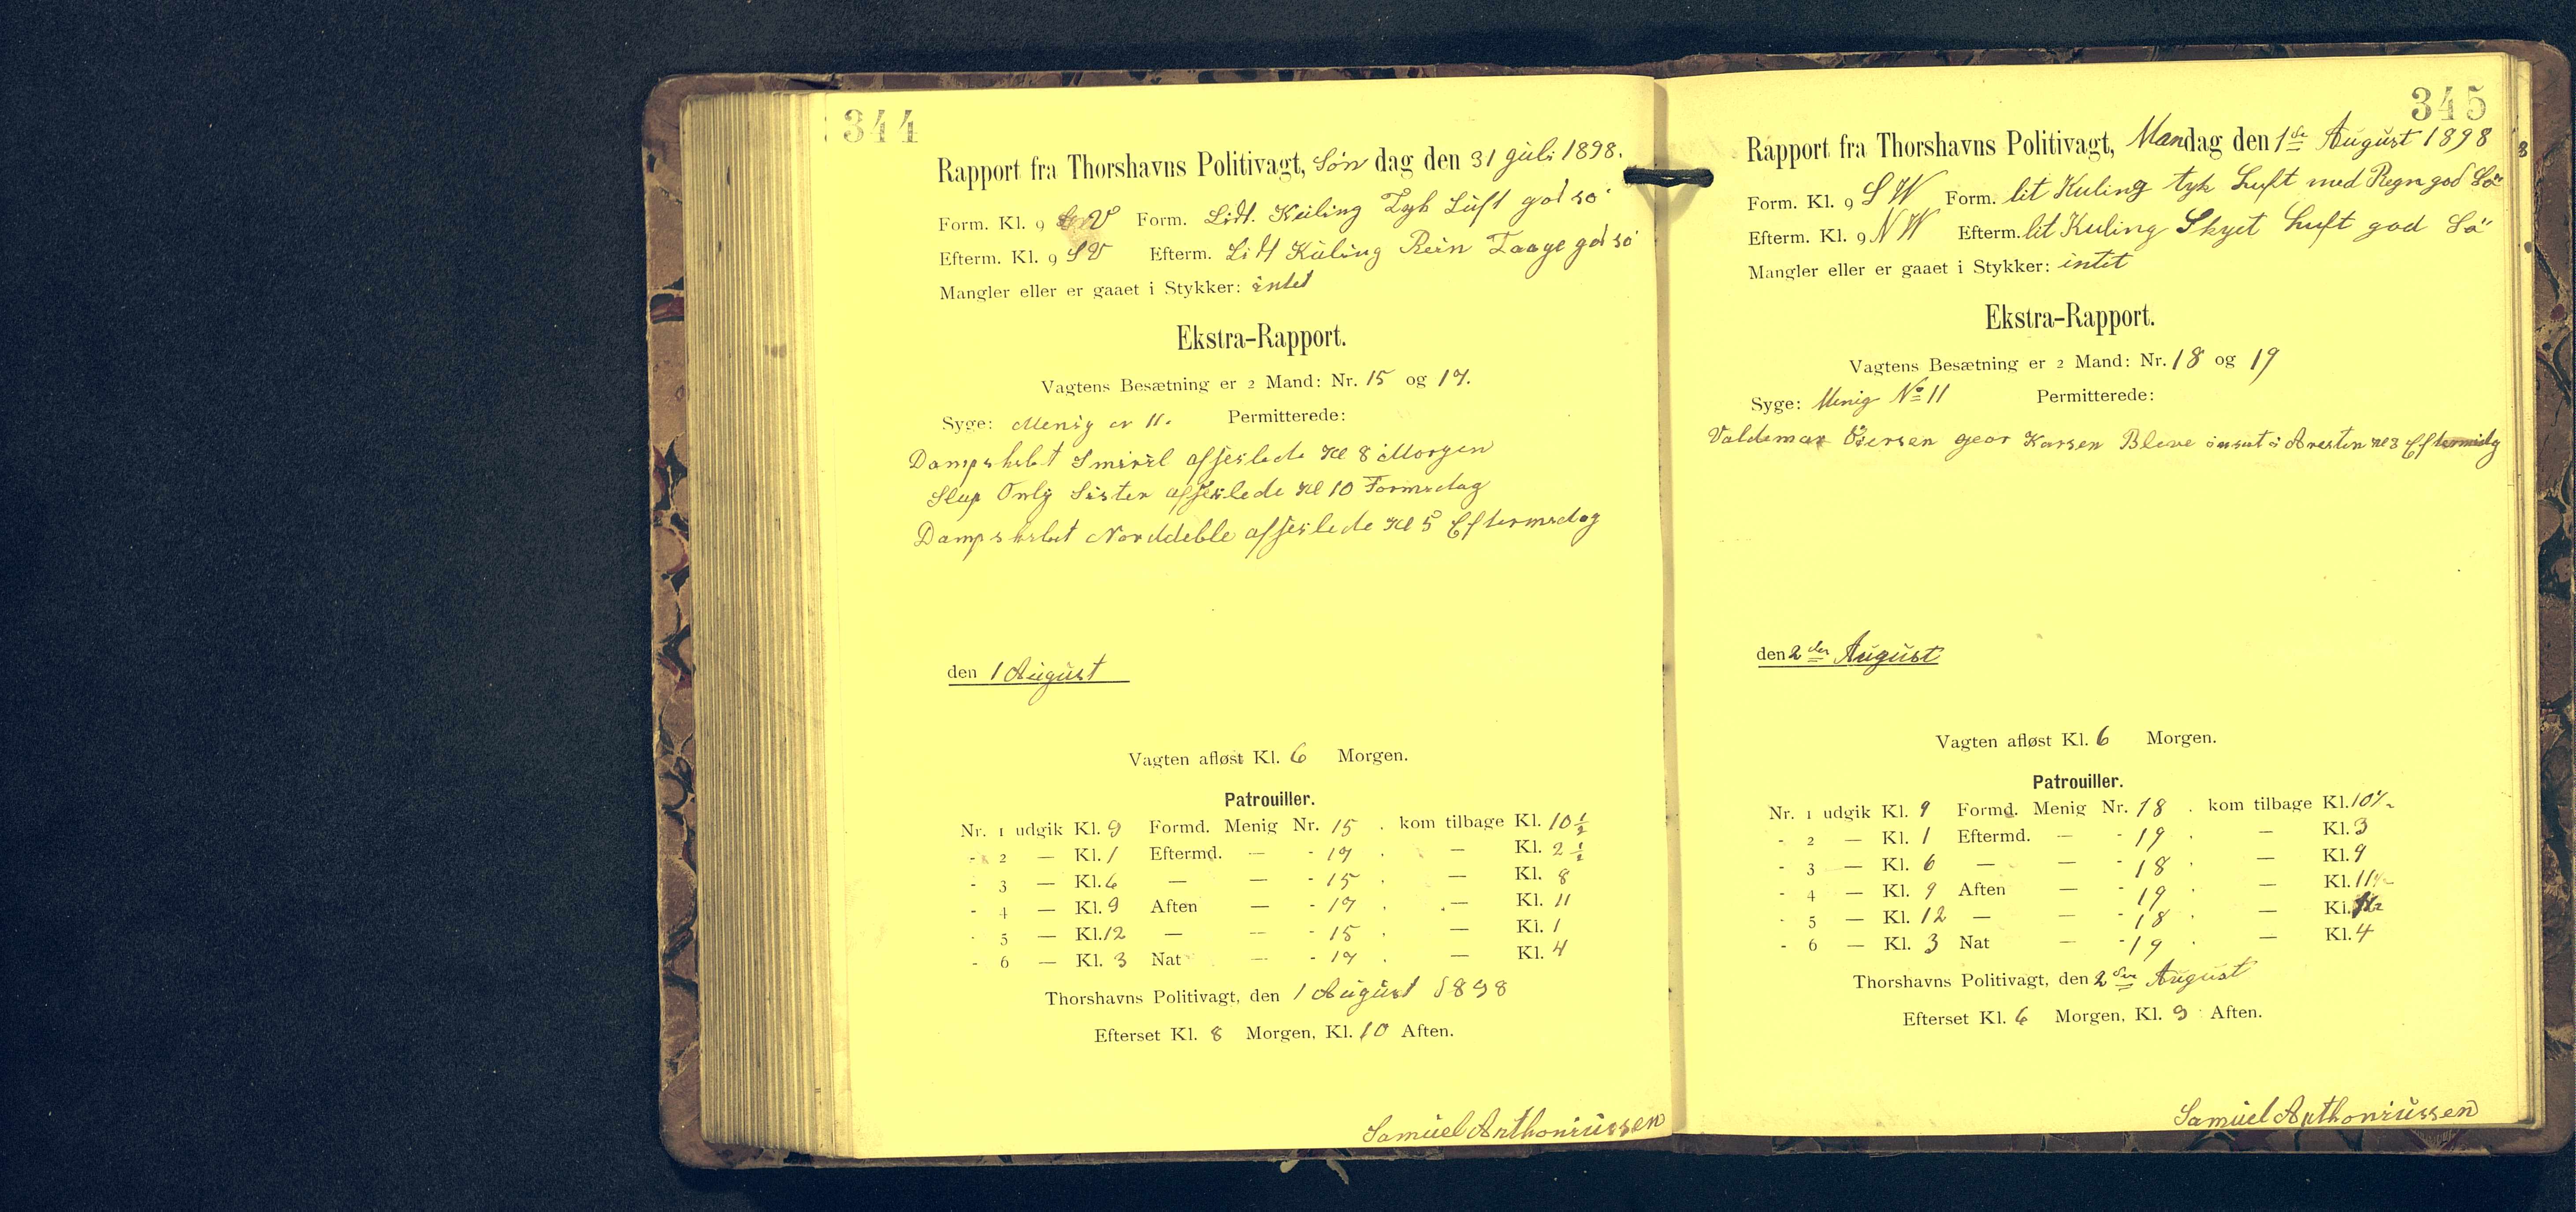 344
Rapport fra Thorshavns Politivagt, Søndag den 31 Juli 1898.
Form. Kl. 9 V Form. Lidt. Kuling Tyk Luft god sö
Efterm. Kl. 9 SV Efterm. Lidt Kuling Rein Taage god sö
Mangler eller er gaaet i Stykker: intet
Ekstra-Rapport.
Vagtens Besætning er 2 Mand: Nr. 15 og 17.
Syge: Menig nr 11. Permitterede:
Dampskbt Smiril afsejlede Kl 8 Morgen
Slup Only Sister afsejlede Kl 10 Formdag
Dampskbt Norddeble afsejlede Kl 5 Eftermdag
den 1 August
Vagten afløst Kl. 6 Morgen.
Patrouiller.
Nr. 1 udgik Kl. 9 Formd. Menig Nr. 15 . kom tilbage Kl. 10½
- 2 — Kl. 1 Eftermd. — - 17 . — Kl. 2½
- 3 — Kl. 6 — — - 15 . — Kl. 8
- 4 — Kl. 9 Aften — - 17 . — Kl. 11
- 5 — Kl. 12 — — - 15 . — Kl. 1
- 6 — Kl. 3 Nat — - 17 . — Kl. 4
Thorshavns Politivagt, den 1 August 1898
Efterset Kl. 8 Morgen, Kl. 10 Aften.
Samuel Anthoniussen
345
Rapport fra Thorshavns Politivagt, Mandag den 1ste August 1898
Form. Kl. 9 SW Form. lit Kuling tyk Luft med Regn god Sö
Efterm. Kl. 9 NW Efterm. lit Kuling Skyet Luft god Sö
Mangler eller er gaaet i Stykker: intet
Ekstra-Rapport.
Vagtens Besætning er 2 Mand: Nr. 18 og 19
Syge: Menig No 11 Permitterede:
Valdemar Karsen Bleve insat i Aresten Kl 3 Eftermidg
den 2den August
Vagten afløst Kl. 6 Morgen.
Patrouiller.
Nr. 1 udgik Kl. 9 Formd. Menig Nr. 18 . kom tilbage Kl. 10½
- 2 — Kl. 1 Eftermd. — - 19 . — Kl. 3
- 3 — Kl. 6 — — - 18 . — Kl. 9
- 4 — Kl. 9 Aften — - 19 . — Kl. 11½
- 5 — Kl. 12 — — - 18 . — Kl.
- 6 — Kl. 3 Nat — - 19 . — Kl. 4
Thorshavns Politivagt, den 2den August
Efterset Kl. 6 Morgen, Kl. 9 Aften.
Samuel Anthoniussen